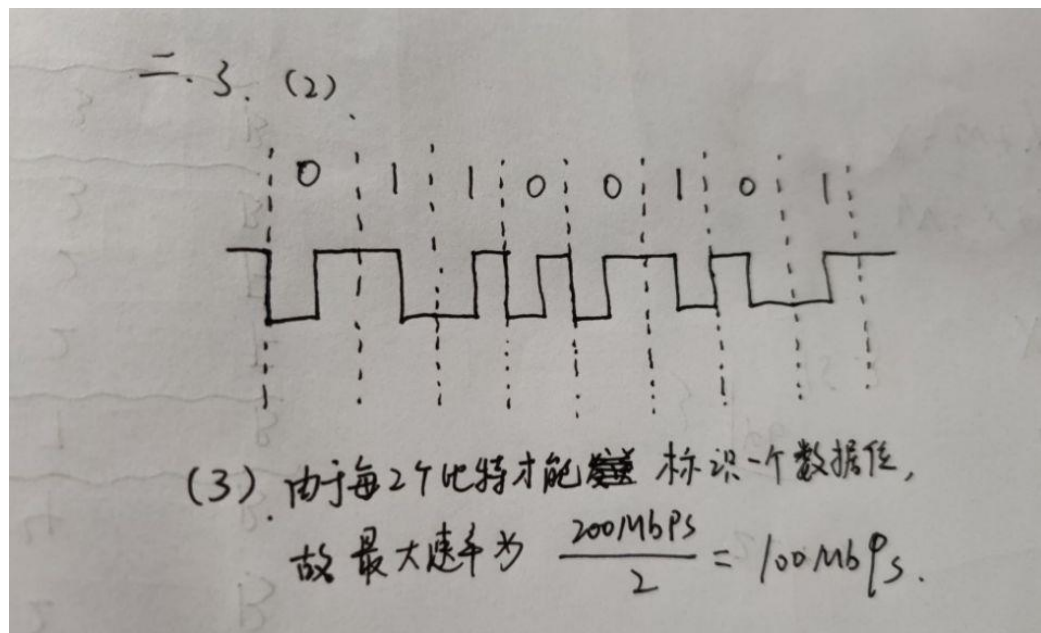 二.3.(2)
0 1 1 0 0 1 0 1
(3).由于每2个比特才能 标识一个数据位,
故最大速率为 200Mbps/2 = 100Mbps.